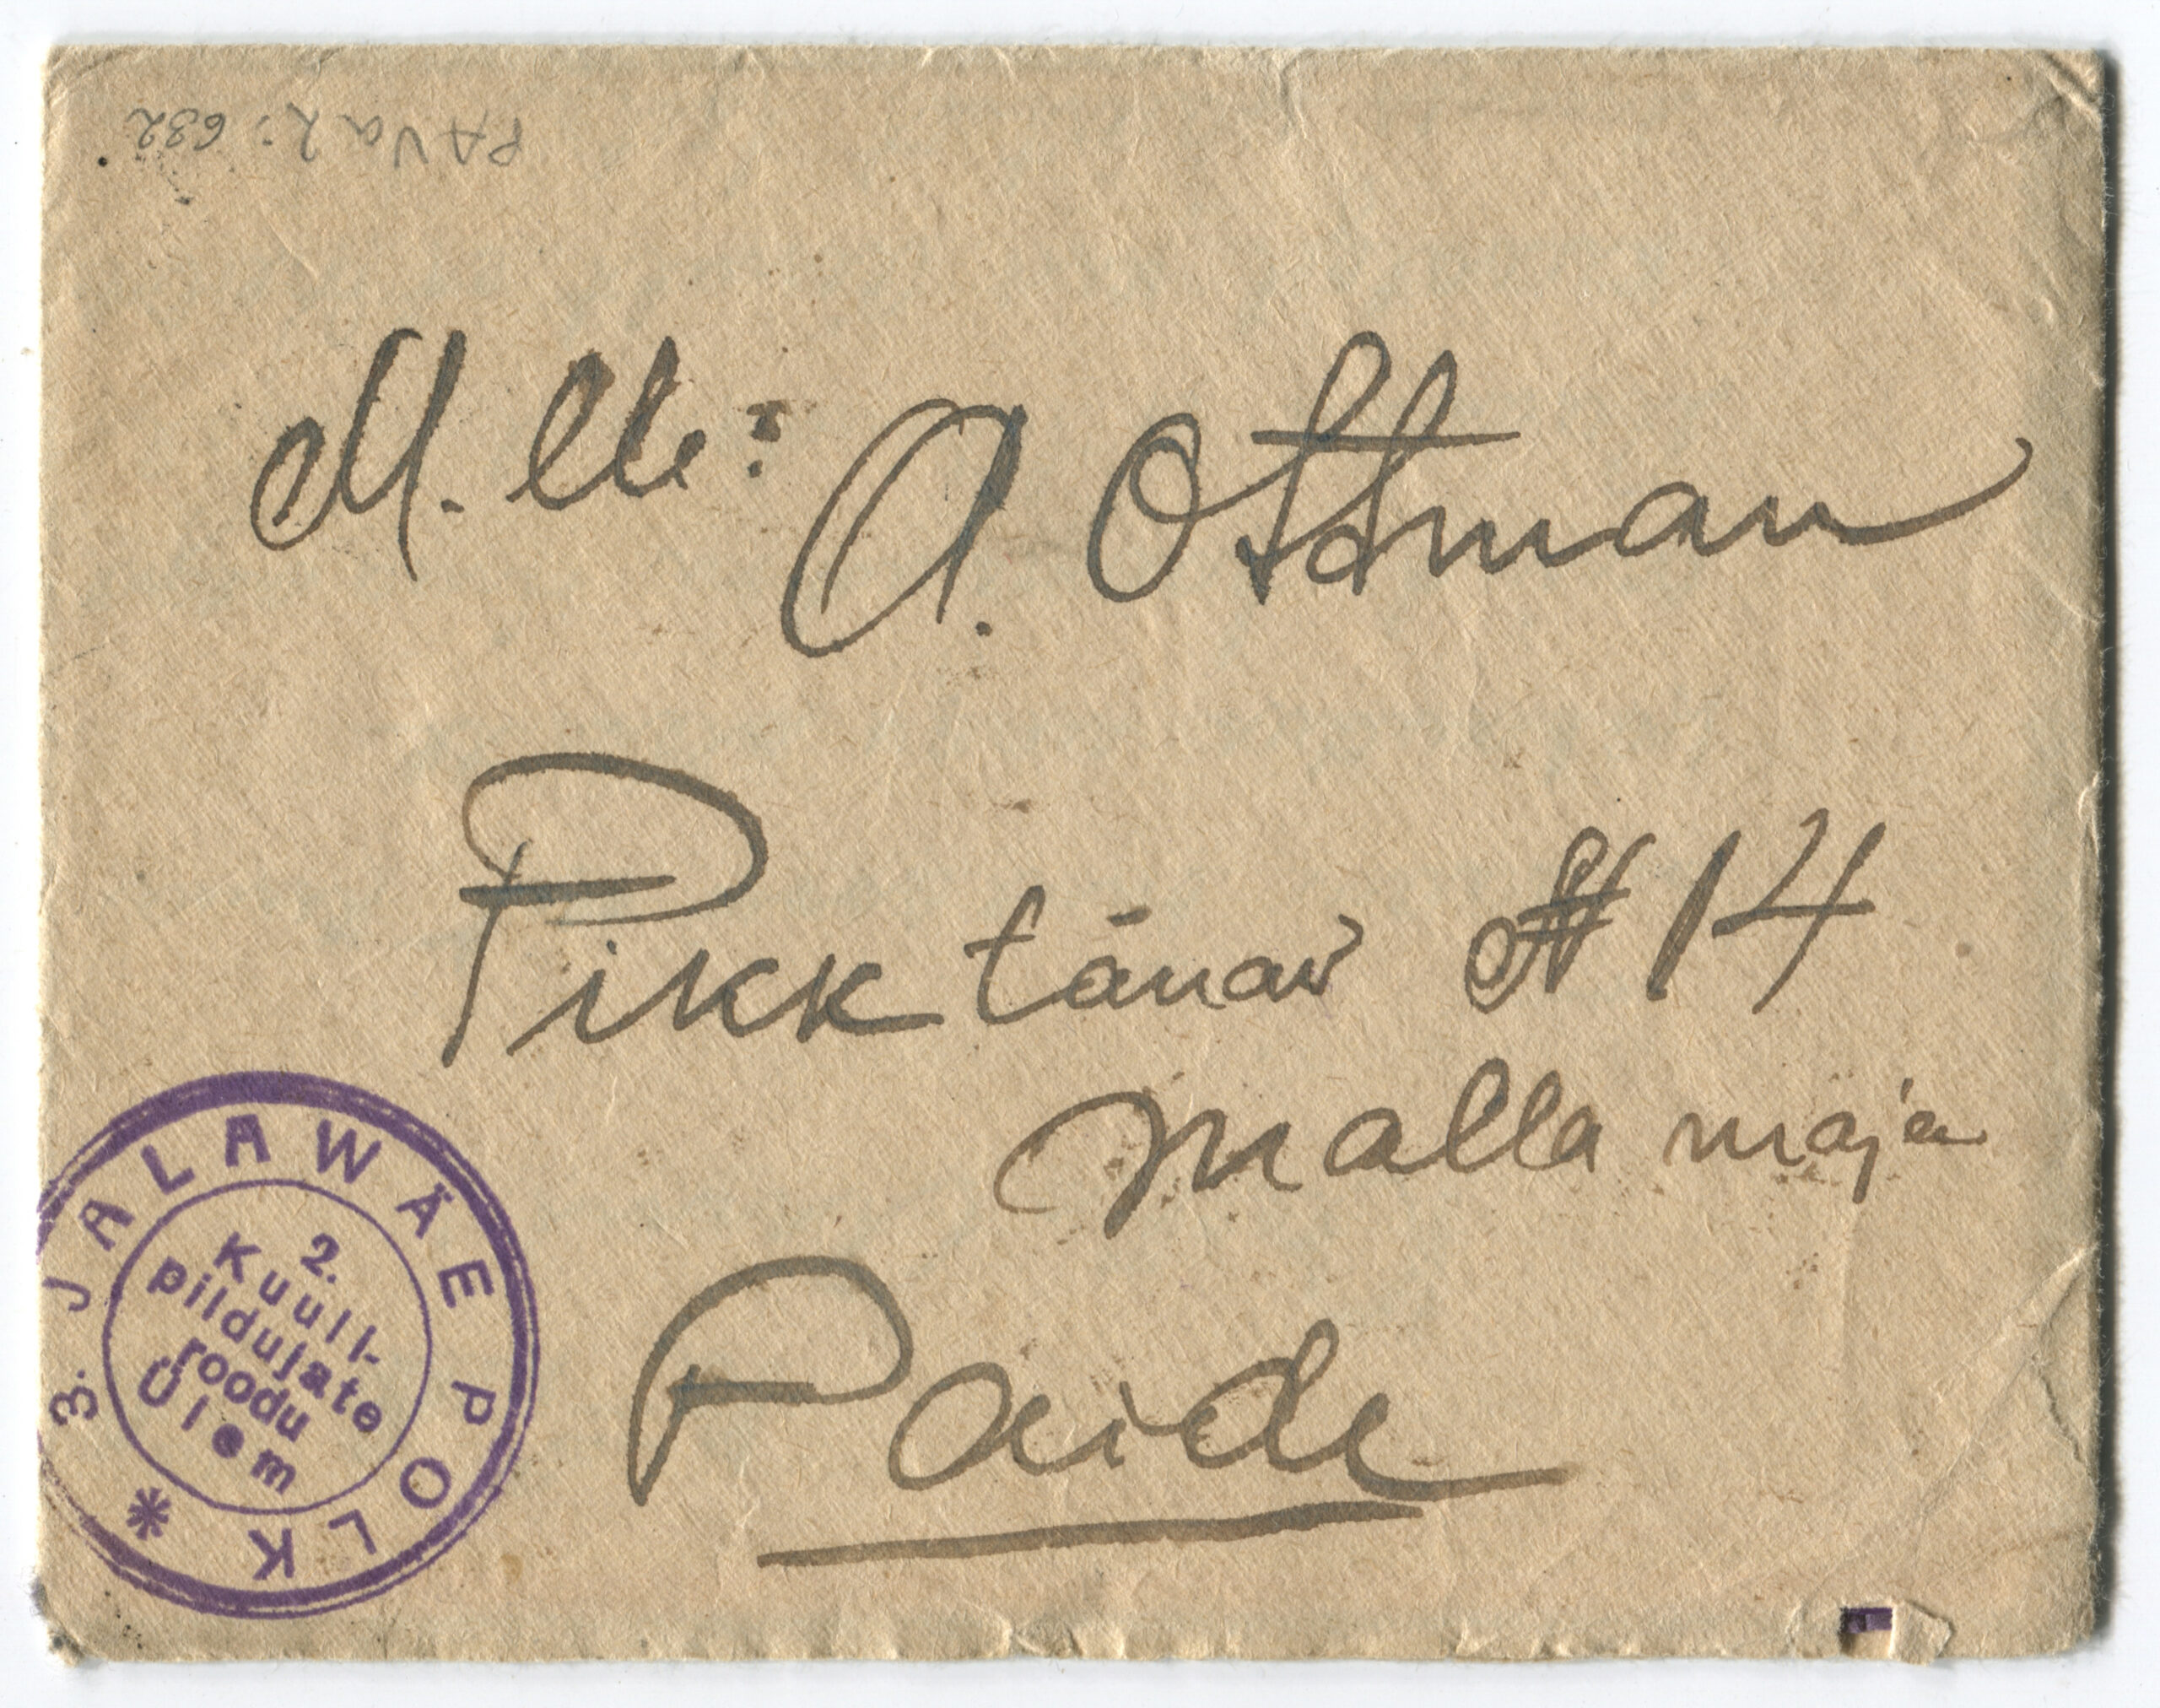 PAVaR: 632
M. lle: A. Ottman
Pikk tänaw № 14
Malla maja
Paide
3. JALAWÄE POLK *
2.
Kuuli-
pildujate
roodu
Ülem